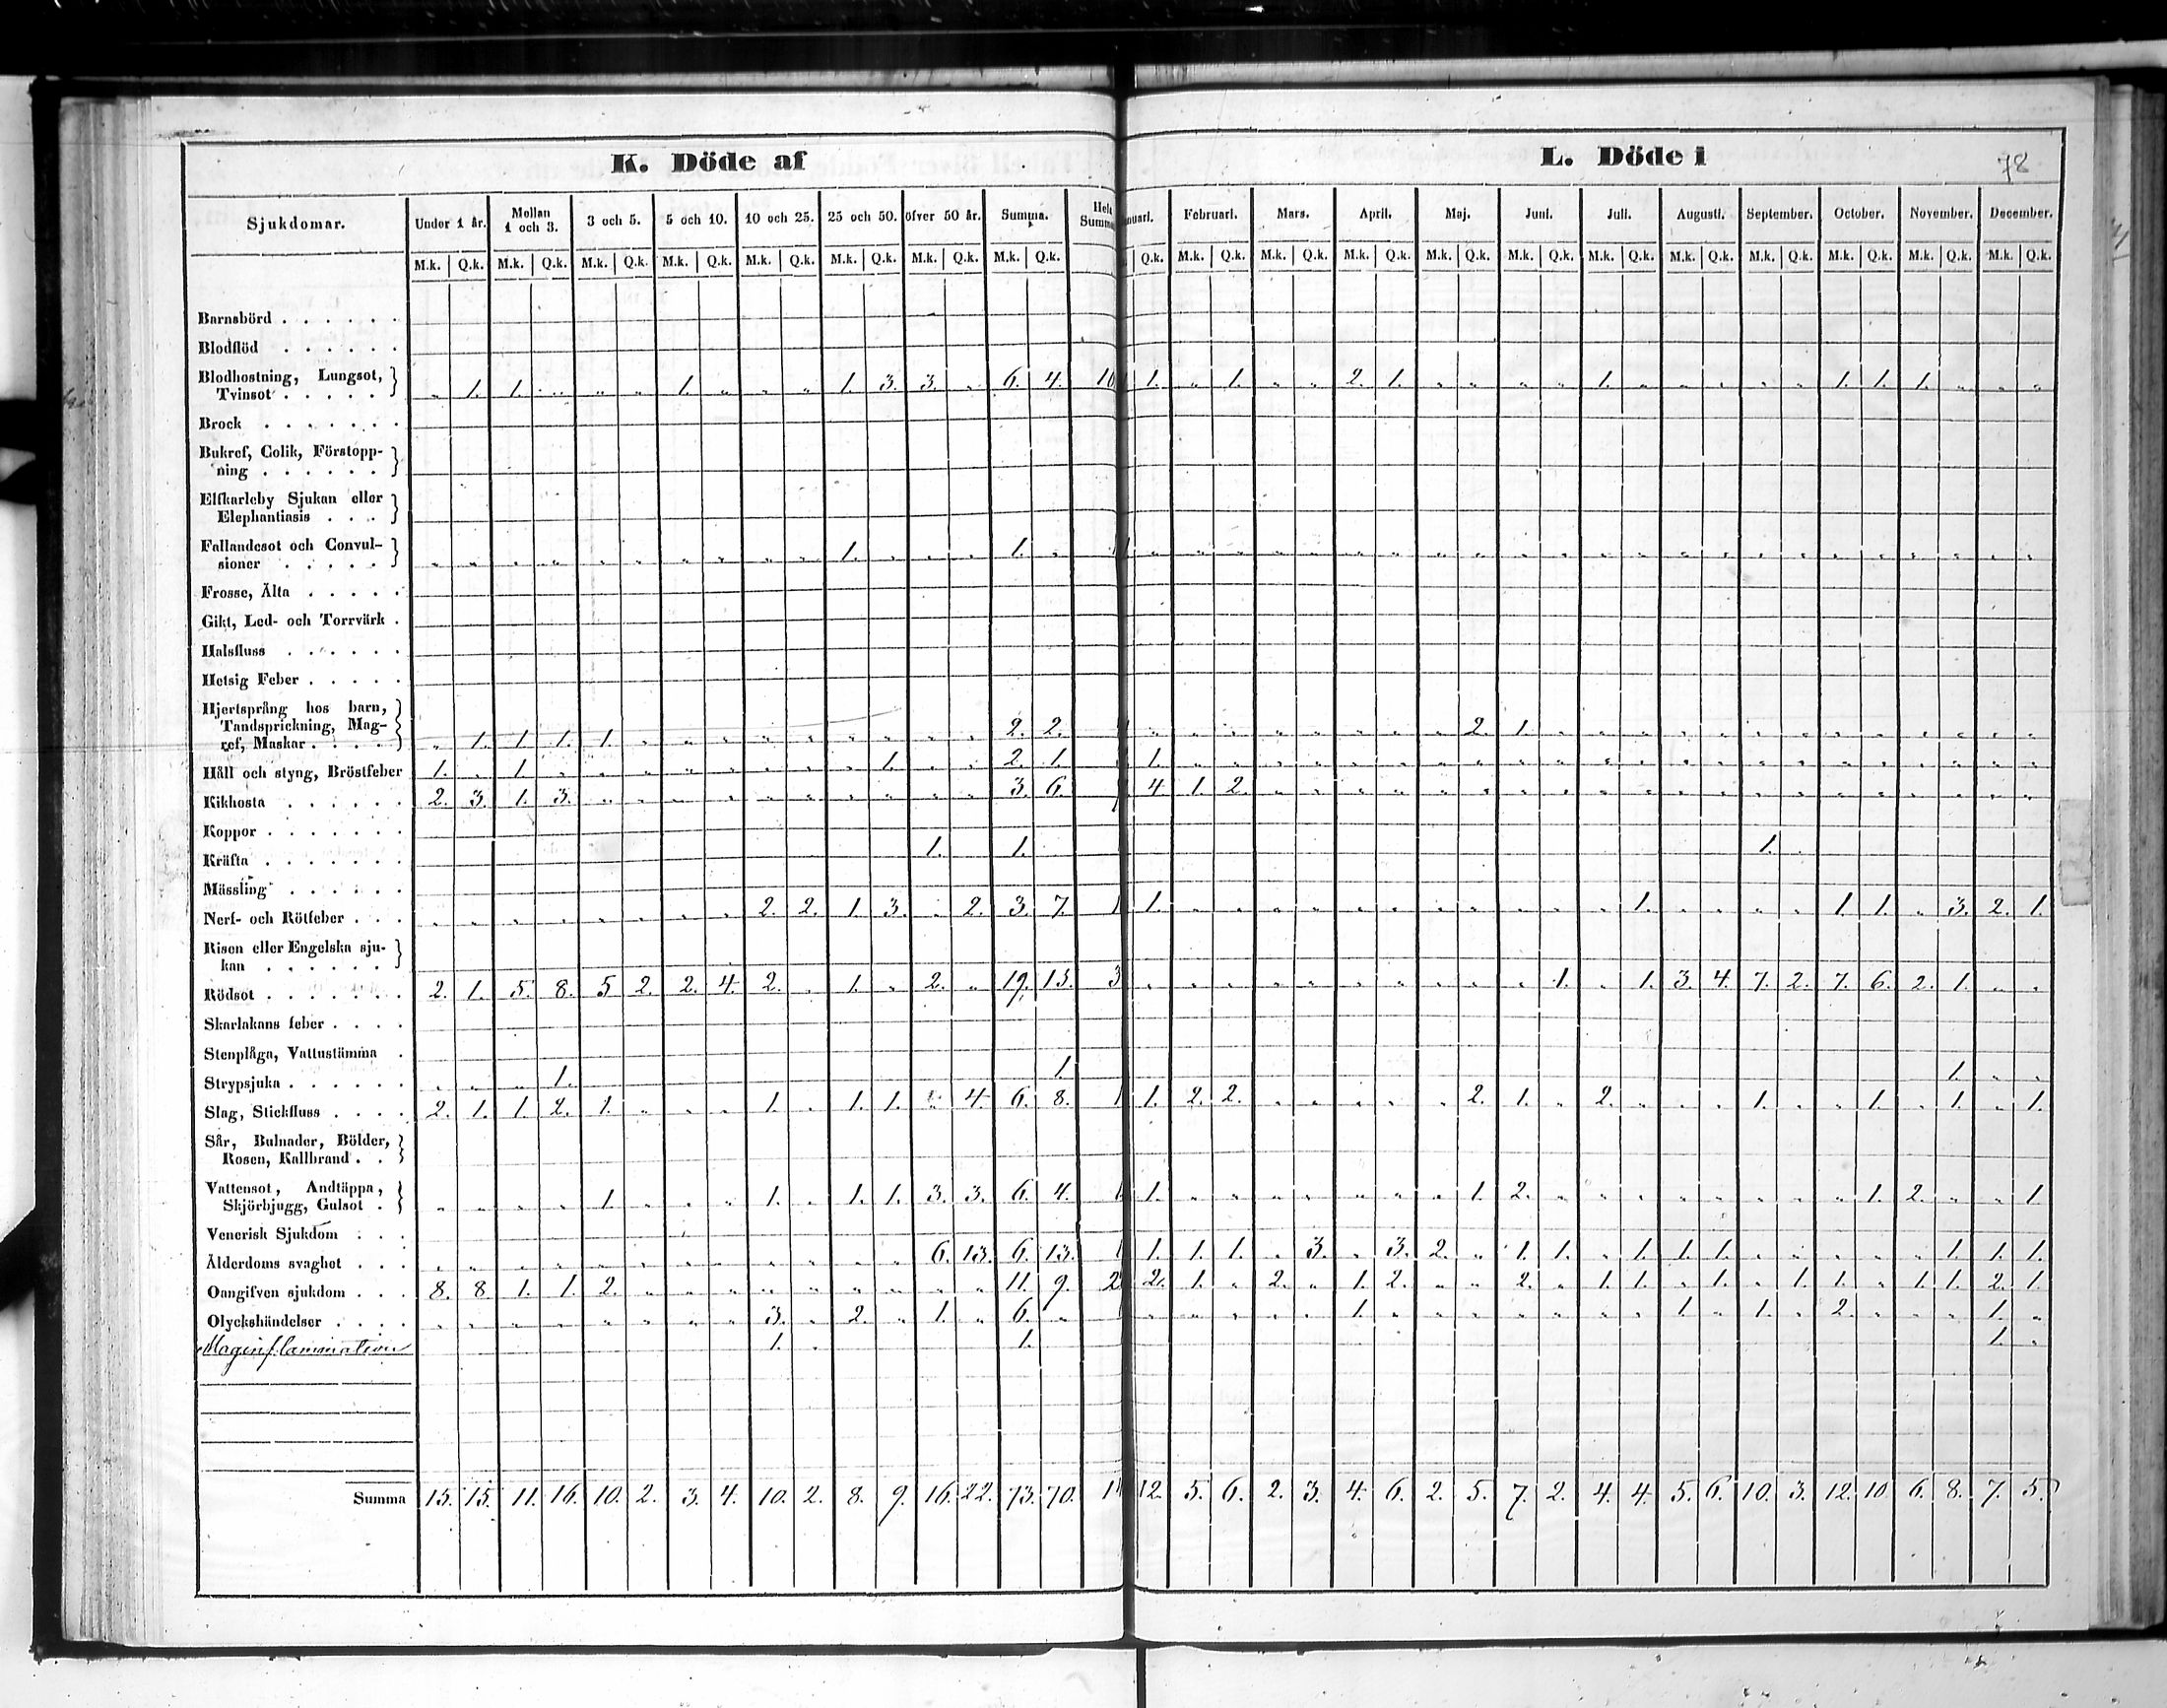 K. Döde af L. Döde i 78
Sjukdomar. Under 1 år. Mellan 1 och 3. 3 och 5. 5 och 10. 10 och 25. 25 och 50. öfver 50 år. Summa. Hela Summa Februari. Mars. April. Maj. Juni. Juli. Augusti. September. October. November. December.
M.k. Q.k. M.k. Q.k. M.k. Q.k. M.k. Q.k. M.k. Q.k. M.k. Q.k. M.k. Q.k. M.k. Q.k. Q.k. M.k. Q.k. M.k. Q.k. M.k. Q.k. M.k. Q.k. M.k. Q.k. M.k. Q.k. M.k. Q.k. M.k. Q.k. M.k. Q.k. M.k. Q.k. M.k. Q.k.
Barnsbörd . . . . . .
Blodflöd . . . . . .
Blodhostning, Lungsot,
Tvinsot . . . . . „ 1. 1. „ „ „ 1. „ „ „ 1. 3. 3. „ 6. 4. 10 1. „ 1. „ „ 2. 1. „ „ „ „ 1. „ „ „ „ „ 1. 1. 1. „ „ „
Brock . . . . . . .
Bukref, Colik, Förstopp-
ning . . . . . .
Elfkarleby Sjukan eller
Elephantiasis . . .
Fallandesot och Convul-
sioner . . . . . „ „ „ „ „ „ „ „ „ „ 1. „ „ „ 1. „
Frosse, Älta . . . . .
Gikt, Led- och Torrvärk .
Halsfluss . . . . . .
Hetsig Feber . . . . .
Hjertsprång hos barn,
Tandsprickning, Mag-
ref, Maskar . . . . „ 1. 1. 1. 1. „ „ „ „ „ „ „ „ „ 2. 2. „ „ „ „ „ „ „ „ 2. 1. „ „ „ „ „ „ „ „ „ „ „ „ „
Håll och styng, Bröstfeber 1. „ 1. „ „ „ „ „ „ „ „ 1. „ „ 2. 1. 1. „ „ „ „ „ „ „ „ „ „ „ „ „ „ „ „ „ „ „ „ „ „
Kikhosta . . . . . . 2. 3. 1. 3. „ „ „ „ „ „ „ „ „ „ 3. 6. 4 1. 2. „ „ „ „ „ „ „ „ „ „ „ „ „ „ „ „ „ „ „ „
Koppor . . . . . . .
Kräfta . . . . . . . 1. 1. 1. .
Mässling . . . . . .
Nerf- och Rötfeber . . . „ „ „ „ „ „ „ „ 2. 2. 1. 3. „ 2. 3. 7. 1 1. „ „ „ „ „ „ „ „ „ „ „ 1. „ „ „ „ 1. 1. „ 3. 2. 1.
Risen eller Engelska sju-
kan . . . . . .
Rödsot . . . . . . . 2. 1. 5. 8. 5 2. 2. 4. 2. „ 1. „ 2. „ 19. 15. 3 „ „ „ „ „ „ „ „ „ „ 1. „ 1. 3. 4. 7. 2. 7. 6. 2. 1. „ „
Skarlakans feber . . . .
Stenplåga, Vattustämma .
Strypsjuka . . . . . . „ „ „ 1. 1. 1. „ „
Slag, Stickfluss . . . . 2. 1. 1. 2. 1. „ „ „ 1. „ 1. 1. „ 4. 6. 8. 1 1. 2. 2. „ „ „ „ „ 2. 1. „ 2. „ „ „ 1. „ „ 1. „ 1. „ 1.
Sår, Bulnader, Bölder,
Rosen, Kallbrand . .
Vattensot, Andtäppa,
Skjörbjugg, Gulsot . „ „ „ „ 1. „ „ „ 1. „ 1. 1. 3. 3. 6. 4. 1 1. „ „ „ „ „ „ „ 1. 2. „ „ „ „ „ „ „ „ 1. 2. „ „ 1.
Venerisk Sjukdom . . .
Ålderdoms svaghet . . . „ „ „ „ „ „ „ „ „ „ „ „ 6. 13. 6. 13. 1 1. 1. 1. „ 3. „ 3. 2. „ 1. 1. „ 1. 1. 1. „ „ „ „ „ 1. 1. 1.
Oangifven sjukdom . . . 8. 8 1. 1. 2. „ „ „ „ „ „ „ „ „ 11. 9. 2 2. 1. „ 2. „ 1. 2. „ „ 2. „ 1. 1. „ 1. „ 1. 1. „ 1. 1. 2. 1.
Olyckshändelser . . . . „ „ „ „ „ „ „ „ 3. „ 2. „ 1. „ 6. „ „ „ „ „ „ 1. „ „ „ „ „ „ „ 1. „ 1. „ 2. „ „ „ 1. „
Maginflammation 1. . 1. 1. „
Summa 15. 15. 11. 16. 10. 2. 3. 4. 10. 2. 8. 9. 16. 22. 73. 70. 14 12. 5. 6. 2. 3. 4. 6. 2. 5. 7. 2. 4. 4. 5. 6. 10. 3. 12. 10 6. 8. 7. 5.